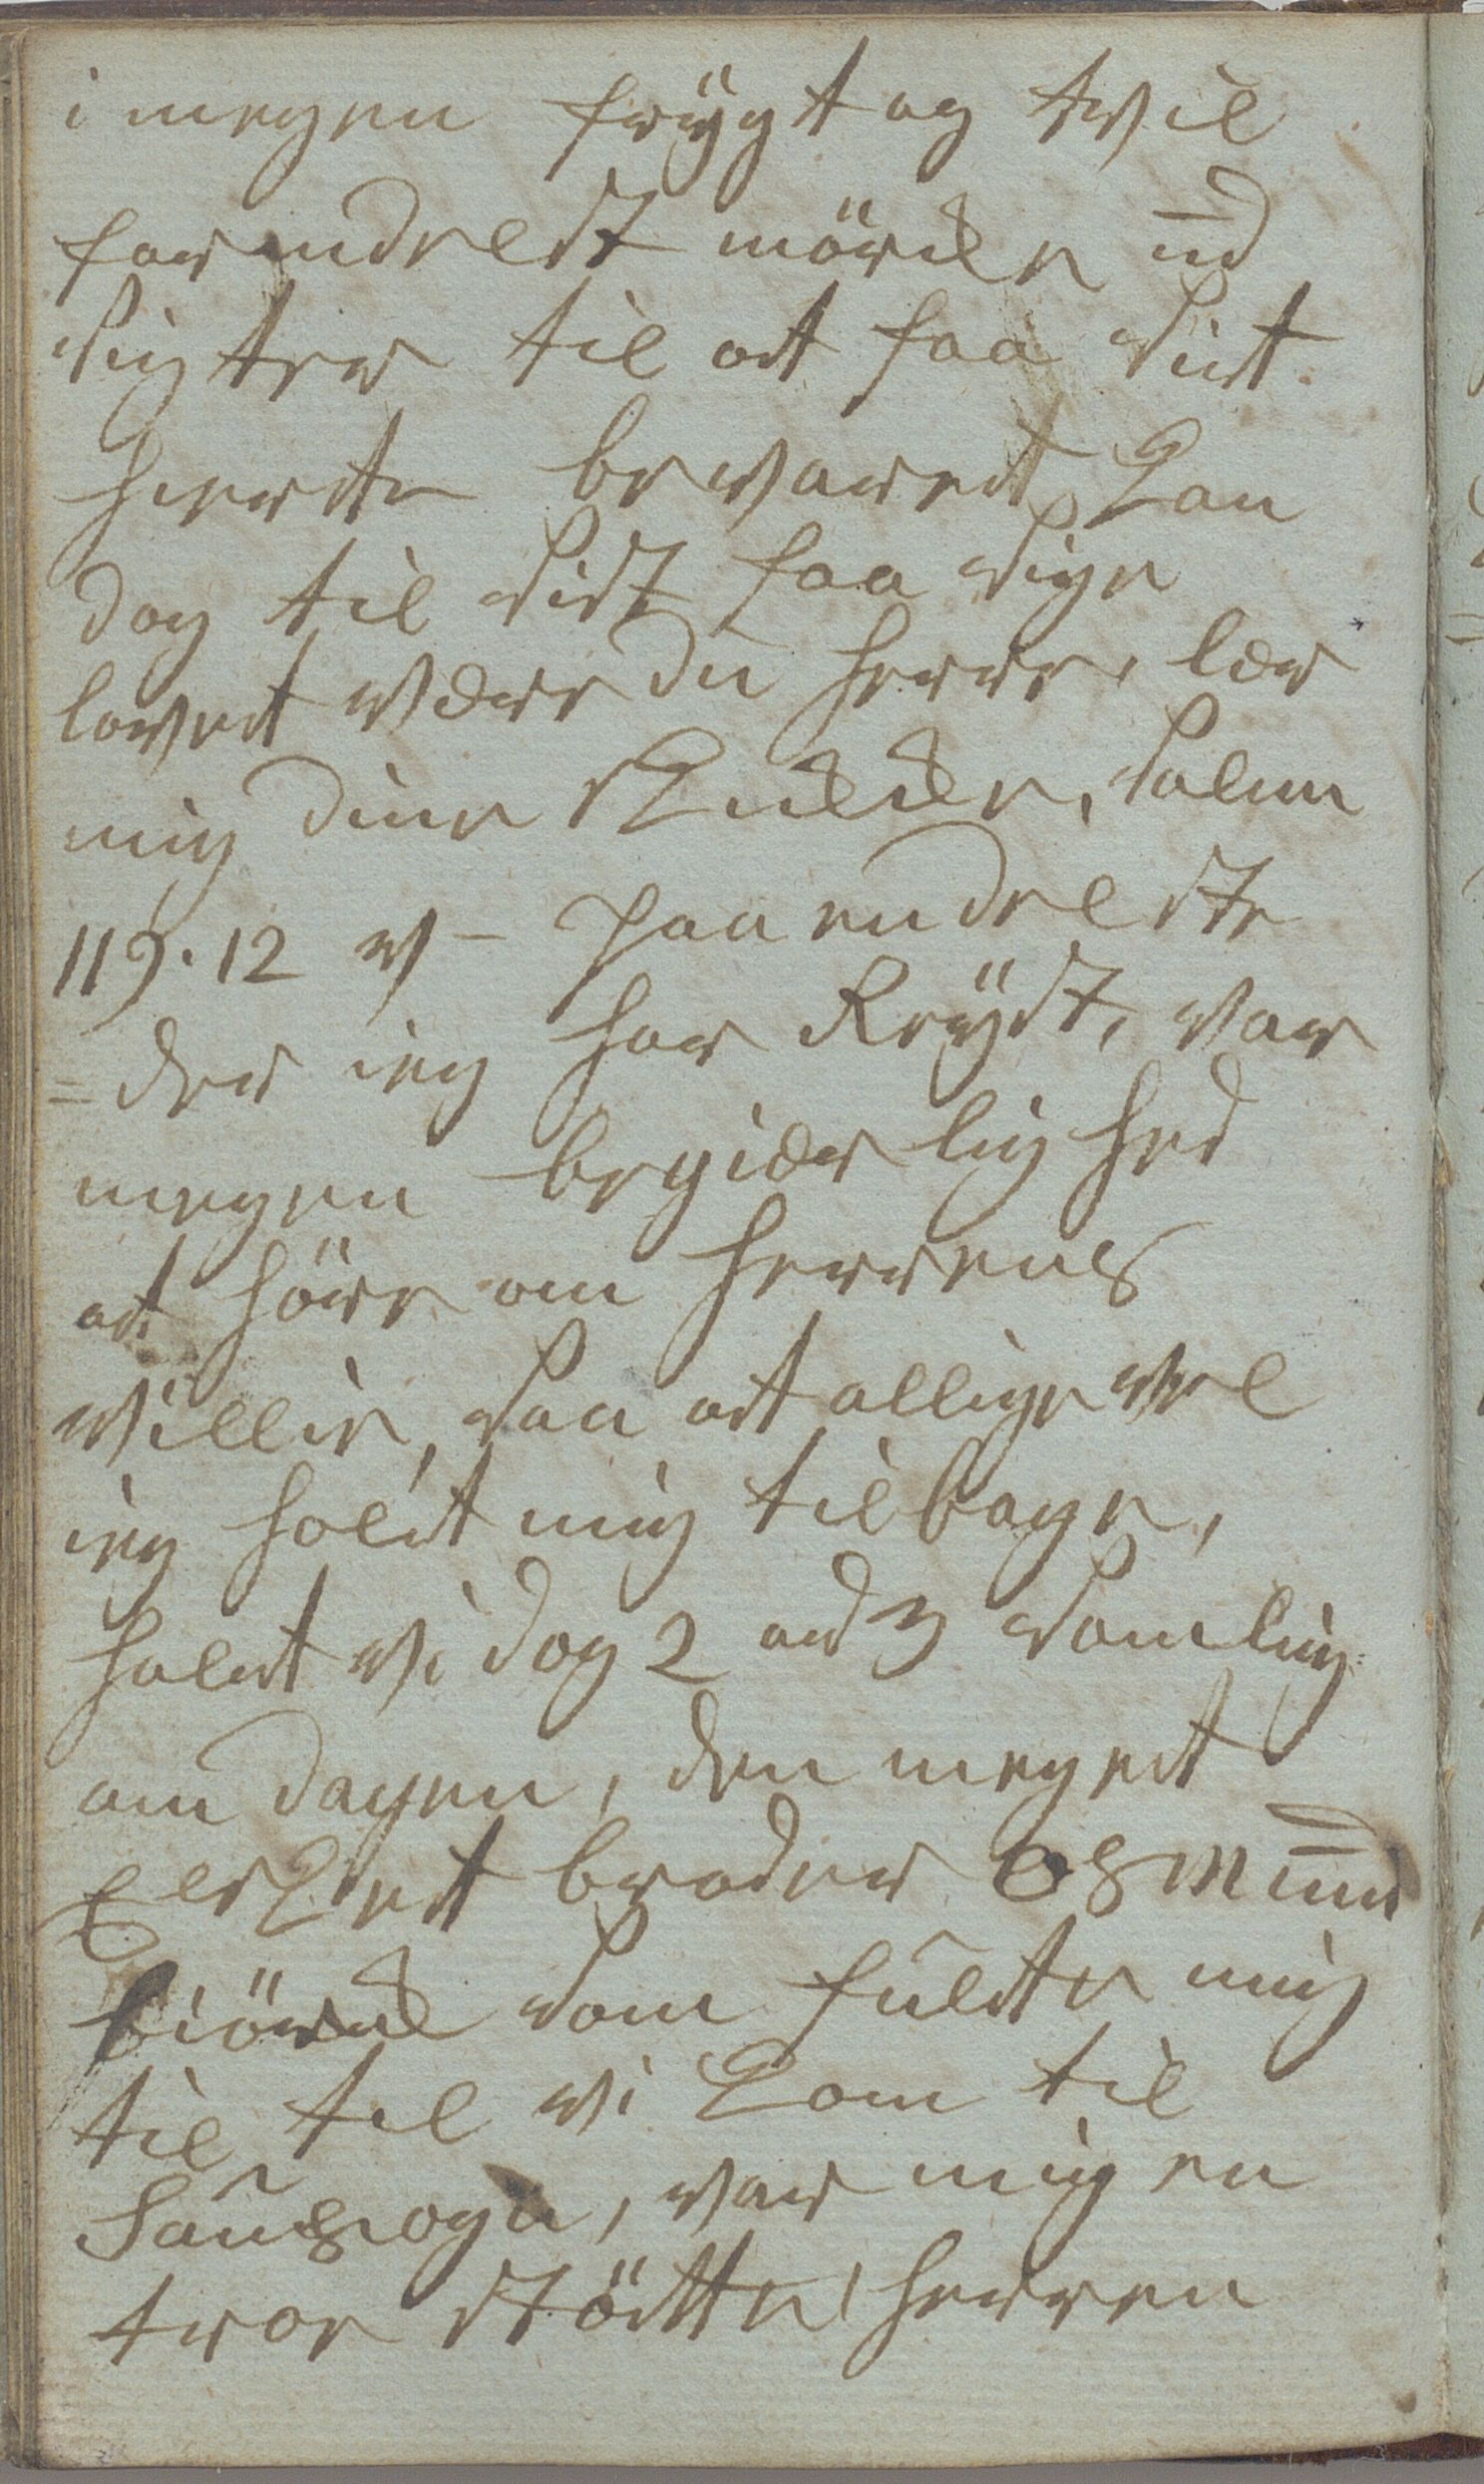 i megen frÿgt og tvil
forundrest mörcker ud
sigter til at faa sut
hierte bevaret Kan
dog til sidst faa sige
lovet være du herre, lær
mig dine skicker, salm
119. 12 v – Paa endeelste
= der ieg har Reÿst, var
megen begiærlighed
at höre om herrens
villie, saa at alligevel
ieg holdt mig tilbage,
holdt vi dog 2 ad 3 samling
om dagen, den meget
Elsket broder osmund
biörnes som fuldte mig
til til vi kom til
Saugogn, var mig en
troe stötte, herren